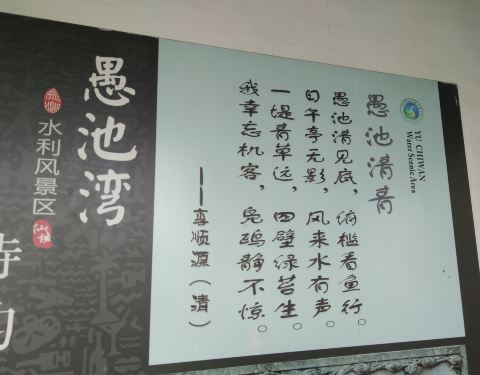 愚池湾
水利风景区
YU CHIWAN
Water Scenic Area
愚池清音
愚池清见底，俯槛看鱼行。
日午亭无影，风来水有声。
一堤青草远，四壁绿苔生。
我幸忘机客，凫鸥静不惊。
——李顺源（清）